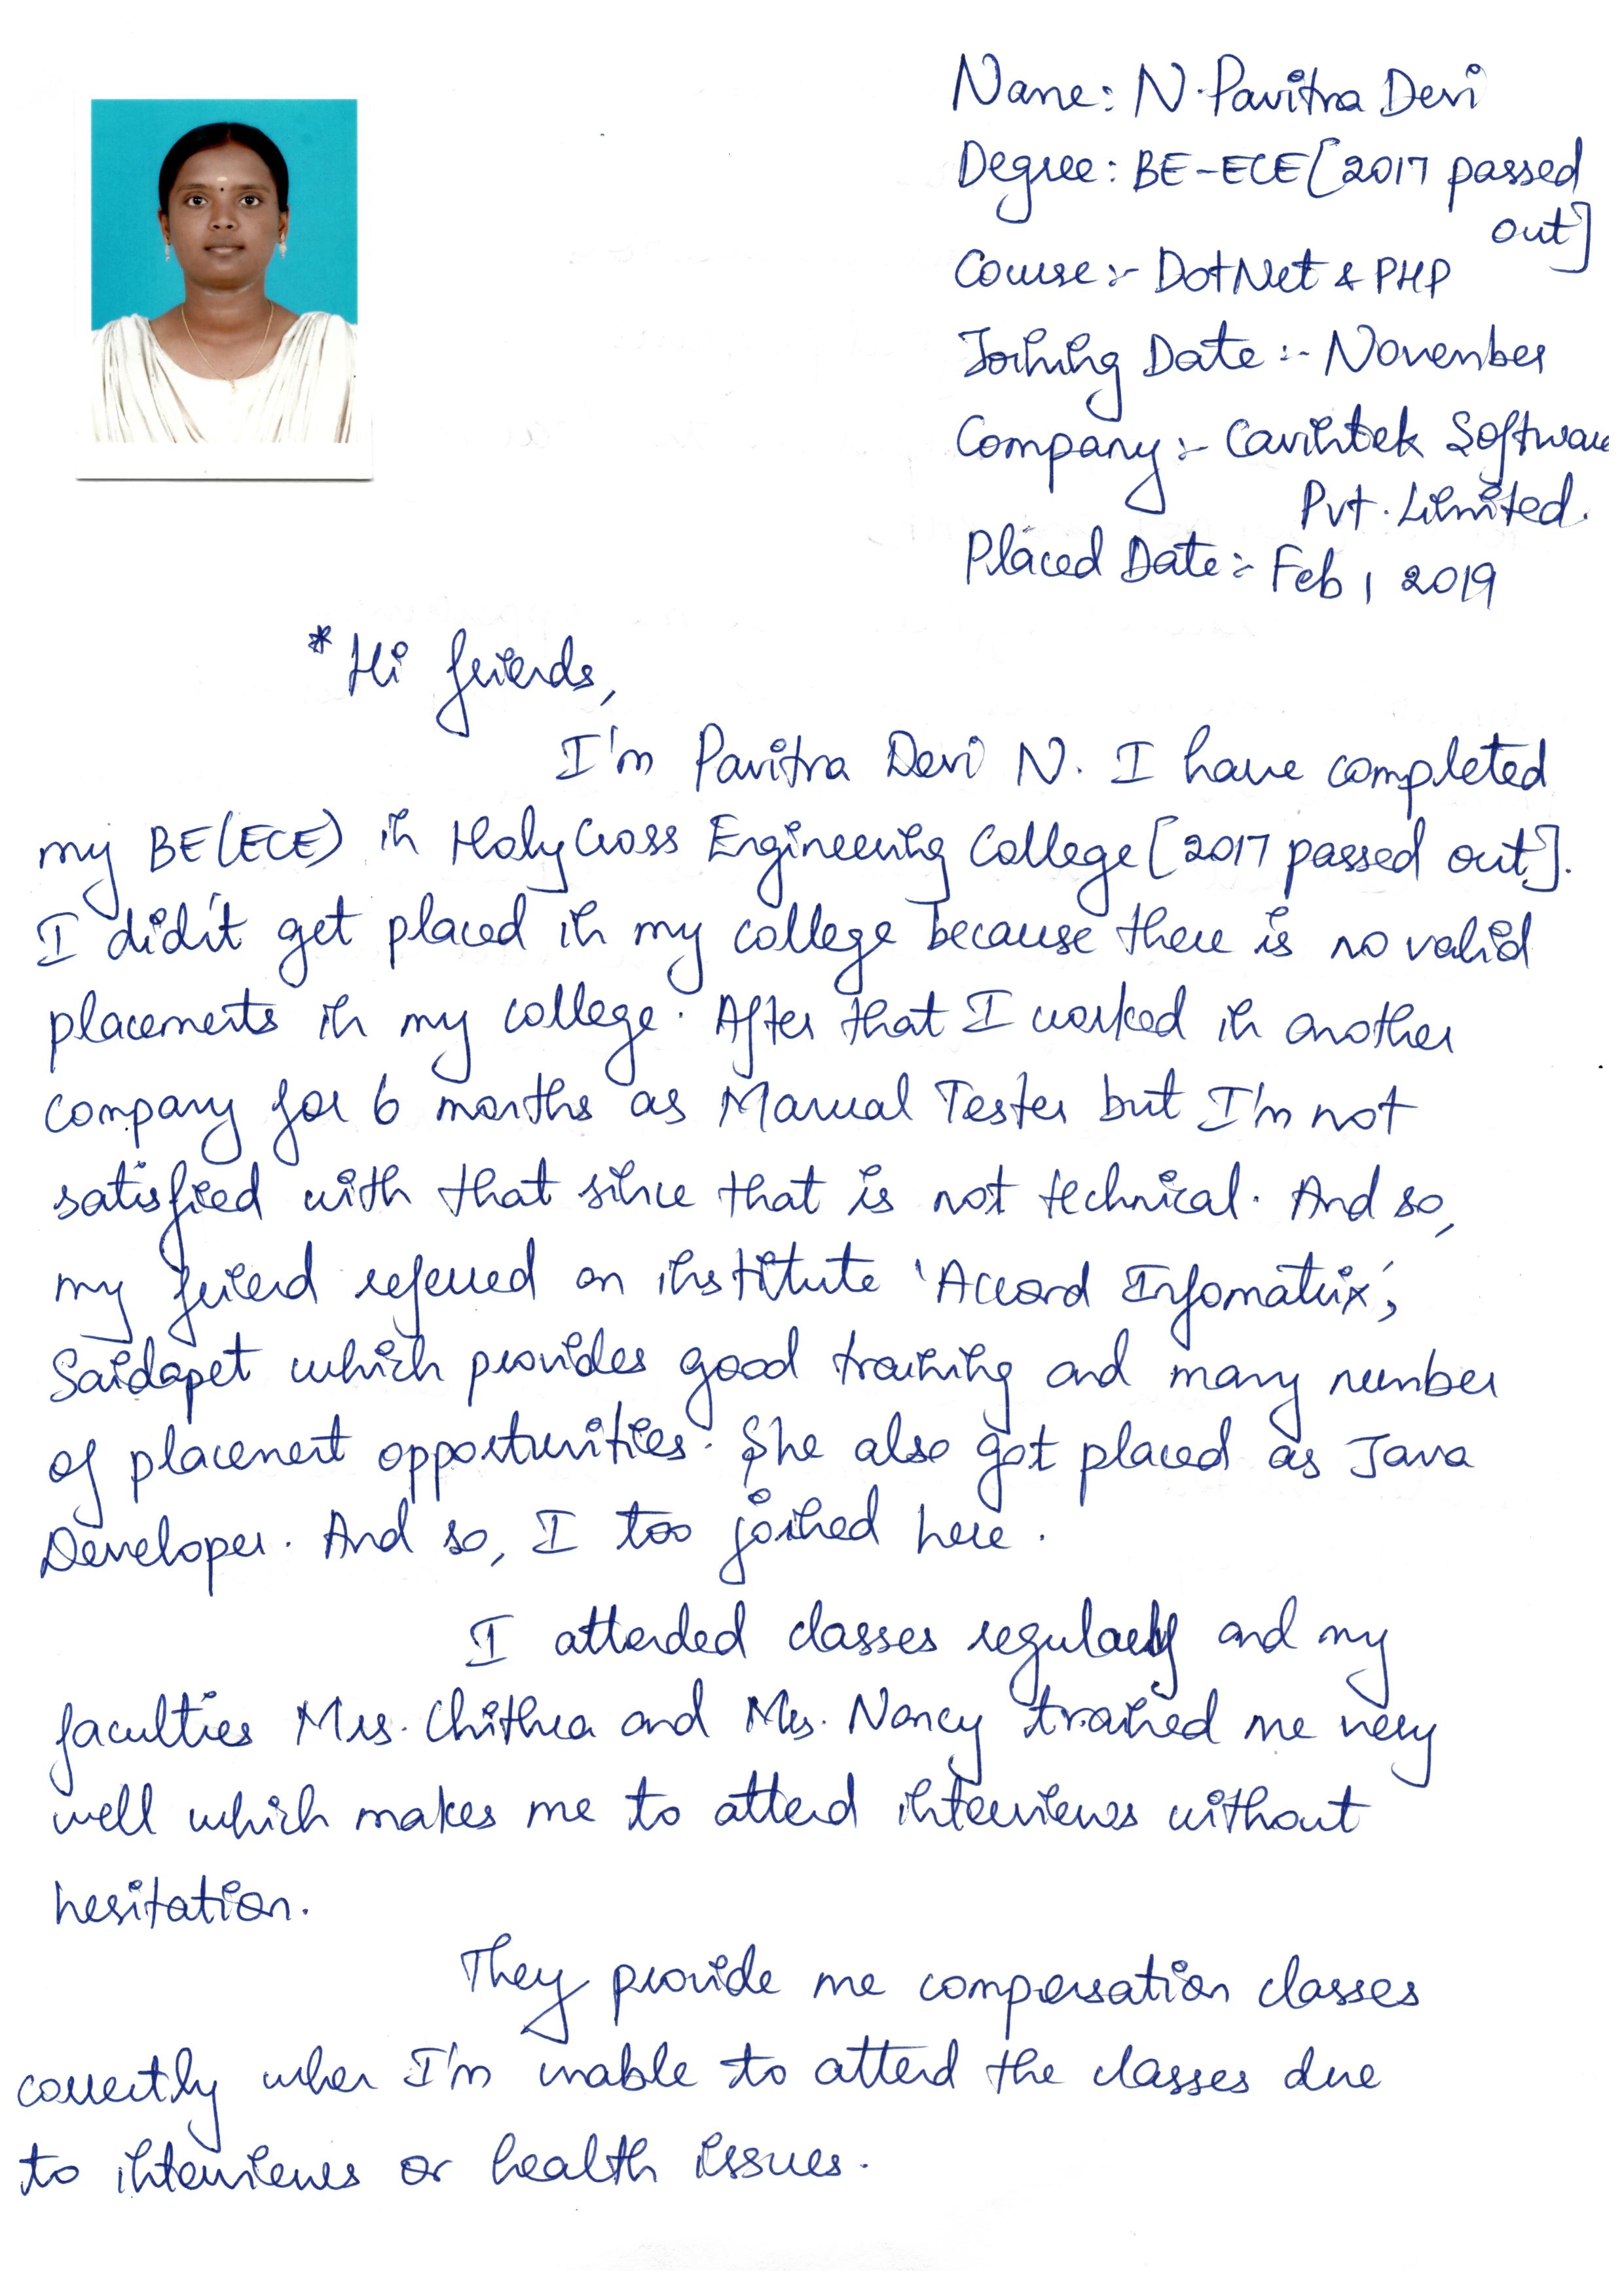 Name: N. Pavitra Devi
Degree: BE-ECE [2017 passed
out]
Course:- DotNet & PHP
Joining Date:- November
Company:- Cavintek Software
Pvt. Limited.
Placed Date:- Feb, 2019
*Hi friends,
I'm Pavitra Devi N. I have completed
my BE(ECE) in HolyCross Engineering College [2017 passed out].
I didn't get placed in my college because there is no valid
placements in my college. After that I worked in another
company for 6 months as Manual Tester but I'm not
satisfied with that since that is not technical. And so,
my friend referred an institute 'Accord Infomatrix',
Saidapet which provides good training and many number
of placement opportunities. She also got placed as Java
Developer. And so, I too joined here.
I attended classes regularly and my
faculties Mrs. Chithra and Ms. Nancy trained me very
well which makes me to attend interviews without
hesitation.
They provide me compensation classes
correctly when I'm unable to attend the classes due
to interviews or health issues.